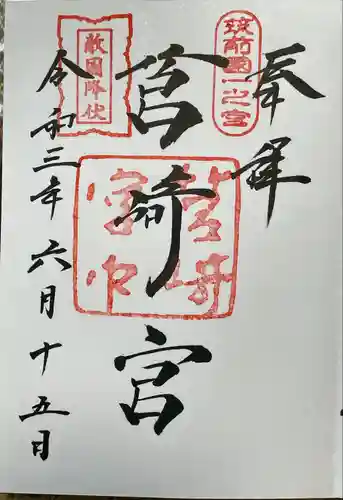 筑前國一之宮
奉拝
筥崎宮
敵国降伏
令和三年六月十五日